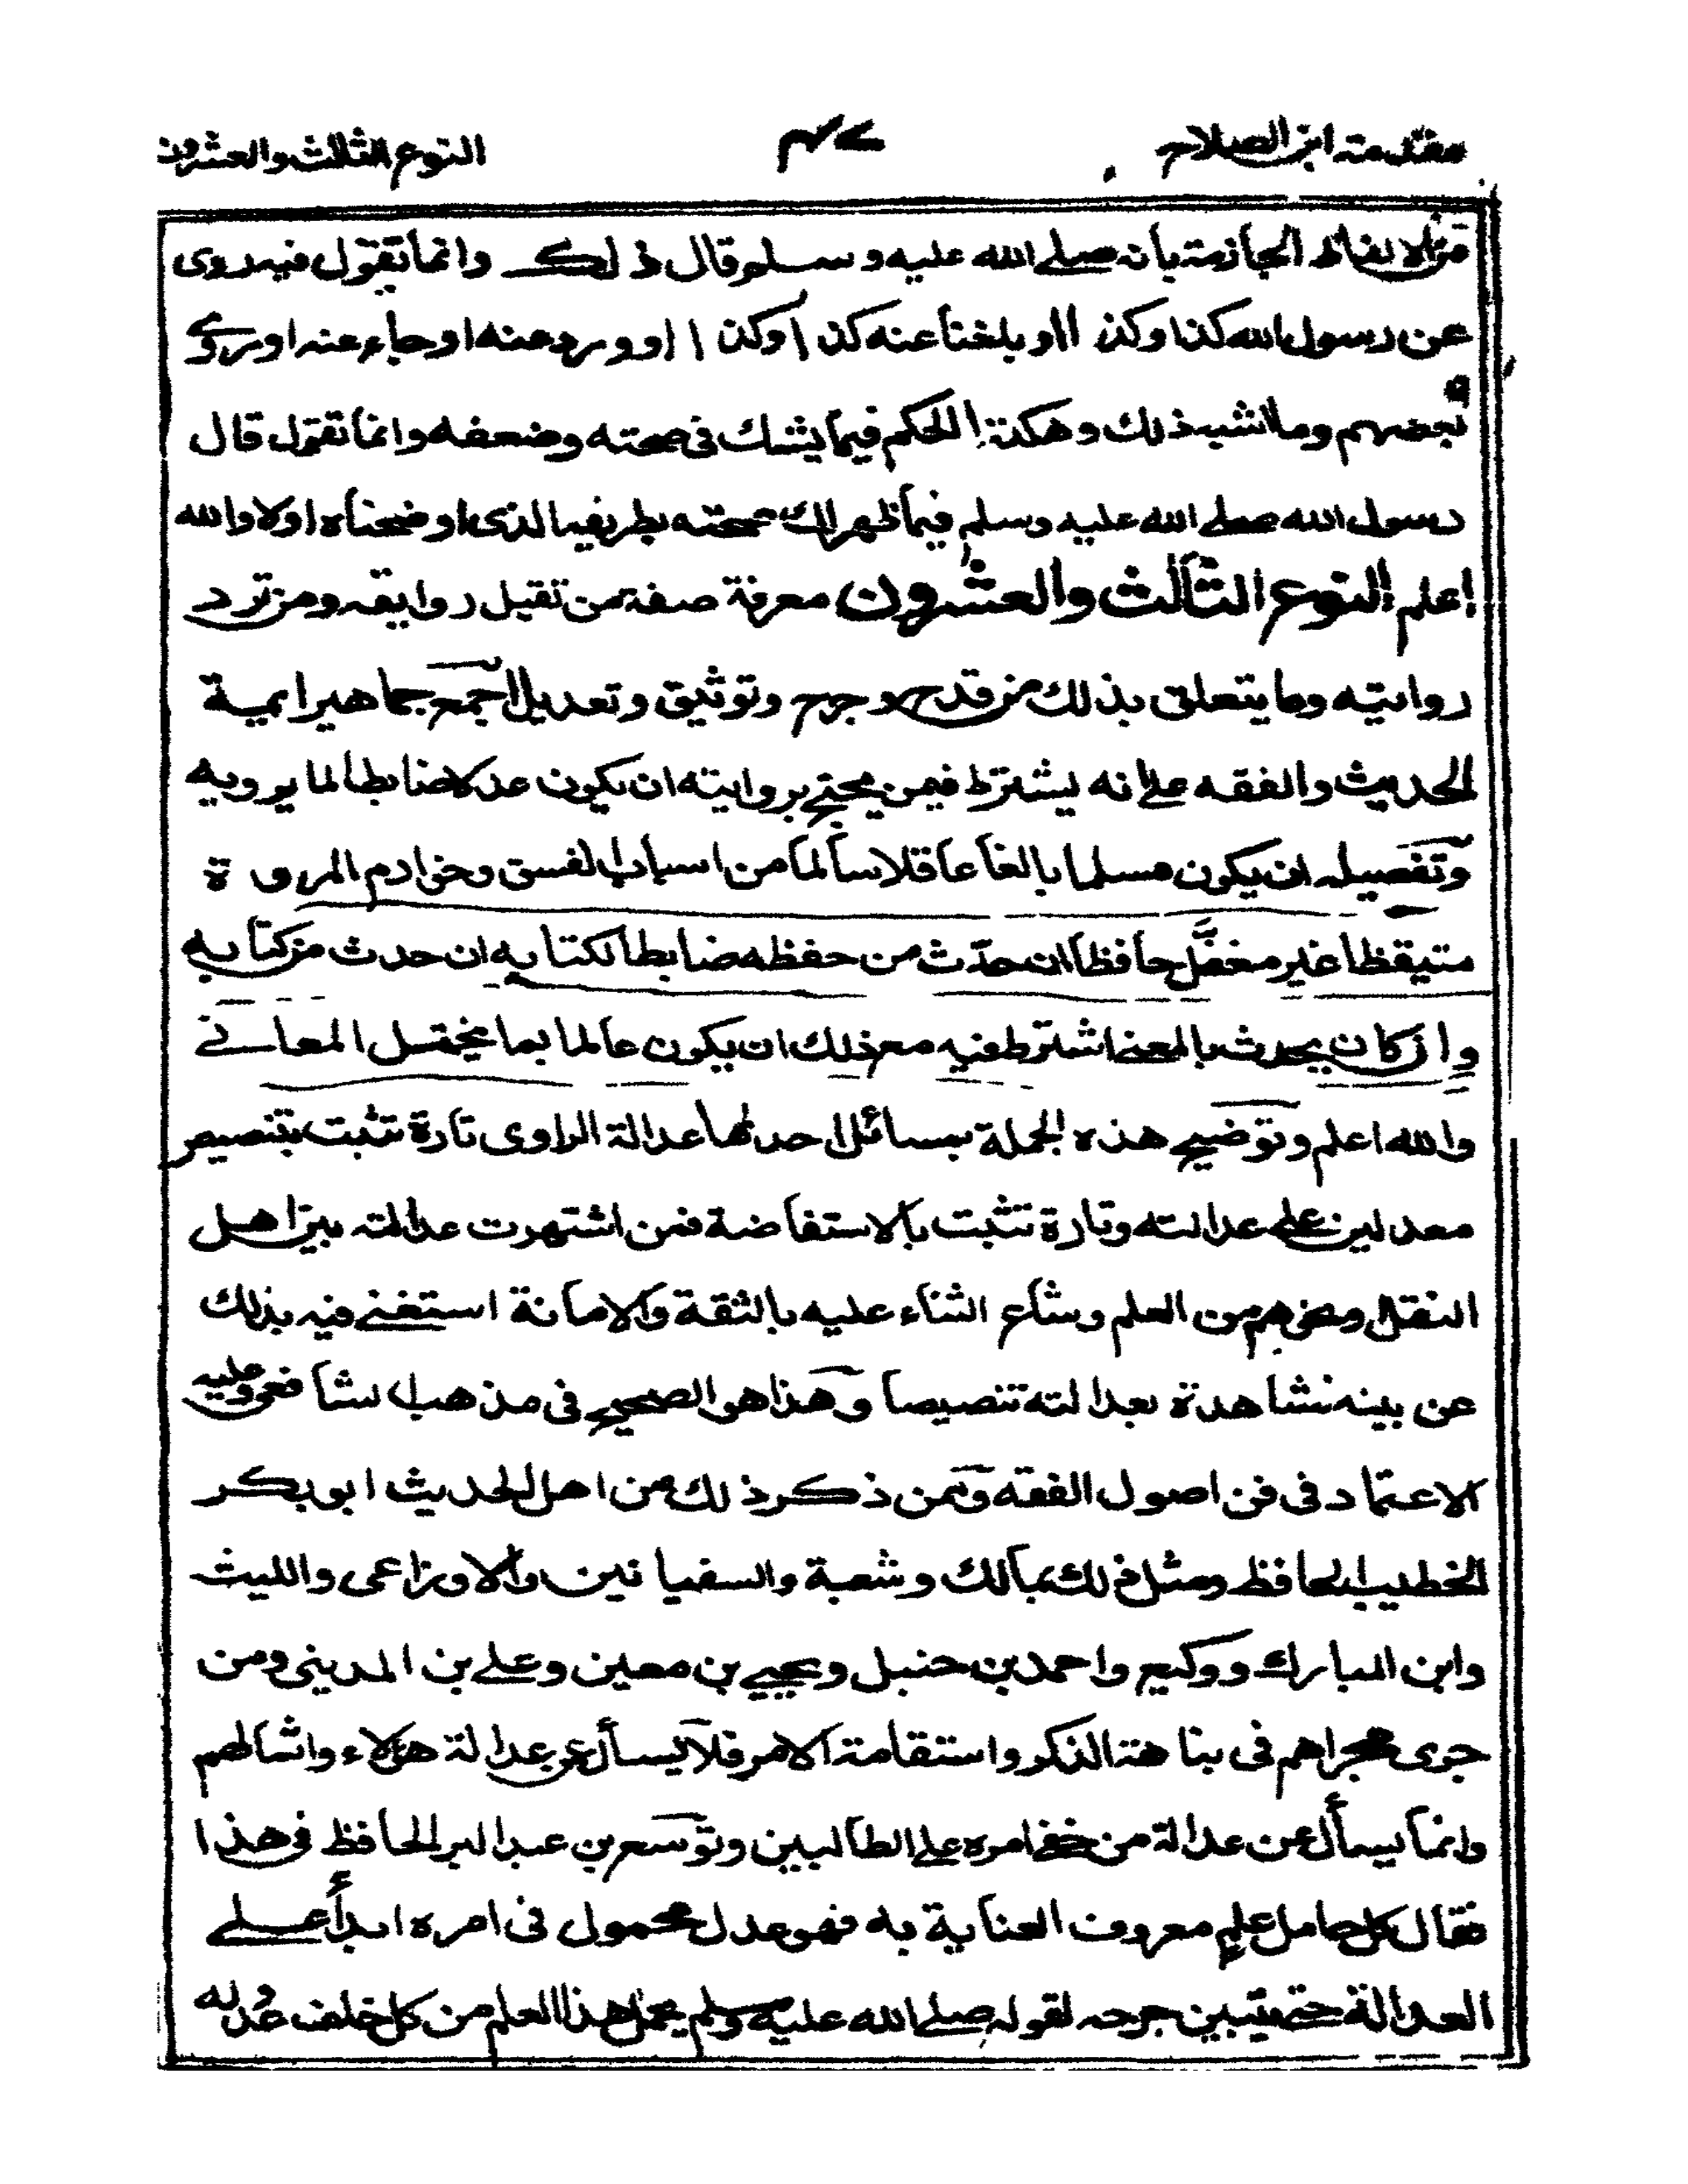 مقدمة ابن الصلاح ٤٧ النوع الثالث والعشرون
من الالفاظ الجازمة بانه صلى الله عليه وسلم قال ذلك وانما تقول فيه روى
عن رسول الله كذا وكذا او بلغنا عنه كذا وكذا او ورد عنه او جاء عنه او روى
بعضهم وما اشبه ذلك وهكذا الحكم فيما يشك فى صحته وضعفه وانما تقول قال
رسول الله صلى الله عليه وسلم فيما ظهر لك صحته بطريقه الذى اوضحناه اولا والله
اعلم النوع الثالث والعشرون معرفة صفة من تقبل روايته ومن ترد
روايته وما يتعلق بذلك من قدح وجرح وتوثيق وتعديل اجمع جماهير ايمة
الحديث والفقه على انه يشترط فيمن يحتج بروايته ان يكون عدلا ضابطا لما يرويه
وتفصيله ان يكون مسلما بالغا عاقلا سالما من اسباب الفسق وخوارم المروة
متيقظا غير مغفل حافظا ان حدث من حفظه ضابطا لكتابه ان حدث من كتابه
وان كان يحدث بالمعنى اشترط فيه مع ذلك ان يكون عالما بما يحيل المعانى
والله اعلم وتوضيح هذه الجملة بمسائل احدٰها عدالة الراوى تارة تثبت بتنصيص
معدلين على عدالته وتارة تثبت بالاستفاضة فمن اشتهرت عدالته بين اهل
النقل ونحوهم من العلم وشاع الثناء عليه بالثقة والامانة استغنى فيه بذلك
عن بينه شاهدة بعدالته تنصيصا وهذا هو الصحيح فى مذهب الشافعى وعليه
الاعتماد فى فن اصول الفقه وممن ذكر ذلك من اهل الحديث ابو بكر
الخطيب الحافظ ومثل ذلك بمالك وشعبة والسفيانين والاوزاعى والليث
وابن المبارك ووكيع واحمد بن حنبل ويحيى بن معين وعلى بن المدينى ومن
جرى مجراهم فى نباهة الذكر واستقامة الامر فلا يسأل عن عدالة هؤلاء وامثالهم
وانما يسأل عن عدالة من خفى امره على الطالبين وتوسع بن عبد البر الحافظ فى هذا
فقال كل حامل علم معروف العناية به فهو عدل محمول فى امره ابدأ على
العدالة حتى يتبين جرحه لقوله صلى الله عليه وسلم يحمل هذا العلم من كل خلف عدوله